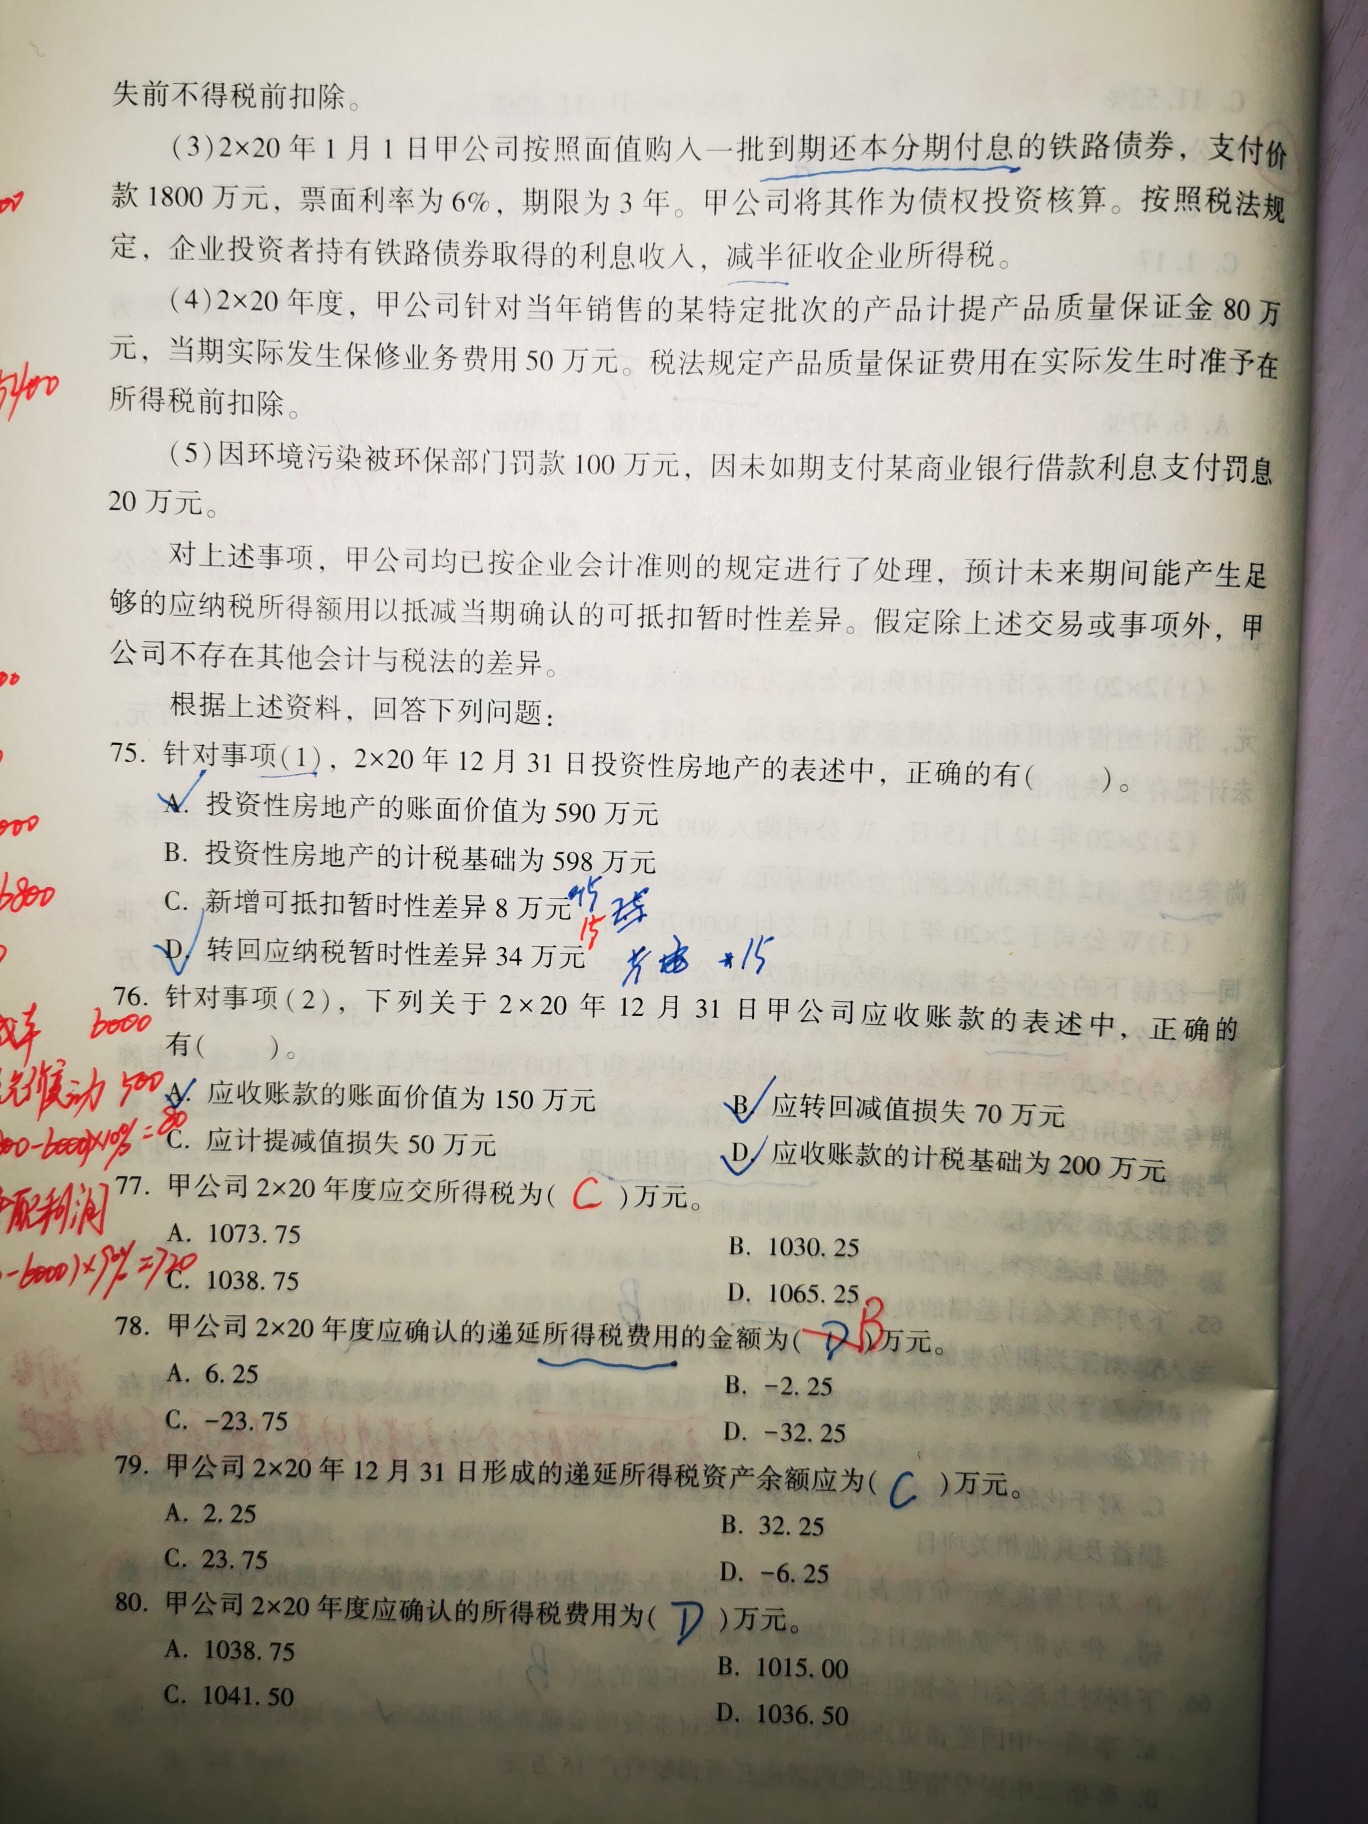 失前不得税前扣除。
(3)2×20年1月1日甲公司按照面值购入一批到期还本分期付息的铁路债券，支付价
款1800万元，票面利率为6%，期限为3年。甲公司将其作为债权投资核算。按照税法规
定，企业投资者持有铁路债券取得的利息收入，减半征收企业所得税。
(4)2×20年度，甲公司针对当年销售的某特定批次的产品计提产品质量保证金80万
元，当期实际发生保修业务费用50万元。税法规定产品质量保证费用在实际发生时准予在
所得税前扣除。
(5)因环境污染被环保部门罚款100万元，因未如期支付某商业银行借款利息支付罚息
20万元。
对上述事项，甲公司均已按企业会计准则的规定进行了处理，预计未来期间能产生足
够的应纳税所得额用以抵减当期确认的可抵扣暂时性差异。假定除上述交易或事项外，甲
公司不存在其他会计与税法的差异。
根据上述资料，回答下列问题：
75. 针对事项(1)，2×20年12月31日投资性房地产的表述中，正确的有(　　)。
A. 投资性房地产的账面价值为590万元
B. 投资性房地产的计税基础为598万元
C. 新增可抵扣暂时性差异8万元
15
D. 转回应纳税暂时性差异34万元
15
76. 针对事项(2)，下列关于2×20年12月31日甲公司应收账款的表述中，正确的
有(　　)。
6000
A. 应收账款的账面价值为150万元
B. 应转回减值损失70万元
500
C. 应计提减值损失50万元
D. 应收账款的计税基础为200万元
-6000)×10%=80
77. 甲公司2×20年度应交所得税为( C )万元。
配利润
A. 1073.75
B. 1030.25
-6000)×90%=720
C. 1038.75
D. 1065.25
78. 甲公司2×20年度应确认的递延所得税费用的金额为( D B )万元。
A. 6.25
B. -2.25
C. -23.75
D. -32.25
79. 甲公司2×20年12月31日形成的递延所得税资产余额应为( C )万元。
A. 2.25
B. 32.25
C. 23.75
D. -6.25
80. 甲公司2×20年度应确认的所得税费用为( D )万元。
A. 1038.75
B. 1015.00
C. 1041.50
D. 1036.50